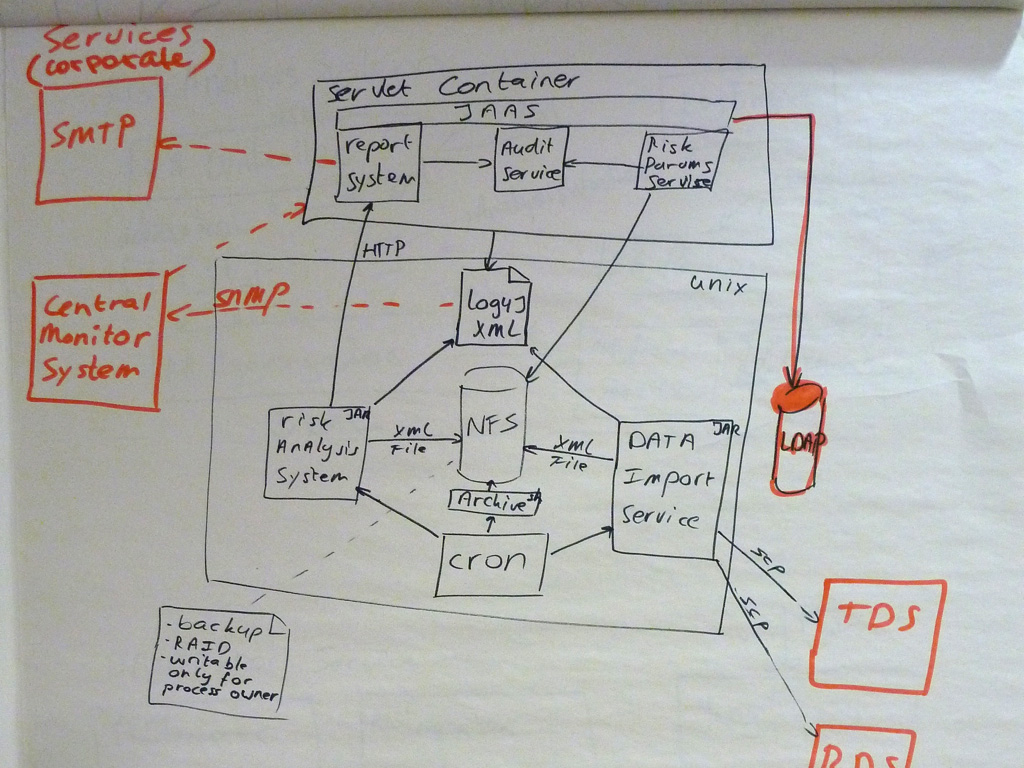 Services
(corporate)
SMTP
Servlet Container
JAAS
report
System
Audit
Service
Risk
Params
Servise
HTTP
unix
Central
Monitor
System
snmp
log4J
XML
NFS
risk JAR
AnAlysis
System
XML
File
XML
File
DATA JAR
Import
Service
LDAP
Archive sh
cron
scp
scp
TDS
RDS
-backup
-RAID
-writable
only for
process owner